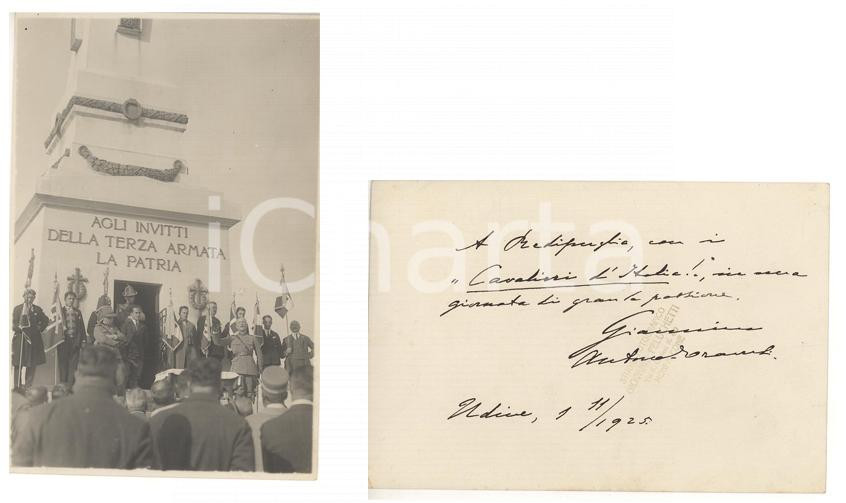 AGLI INVITTI
DELLA TERZA ARMATA
LA PATRIA
iCharta
A Redipuglia, con i
"Cavalieri d'Italia!", in una
giornata di grande passione.
Giannino
Udine, 1 11/1925.